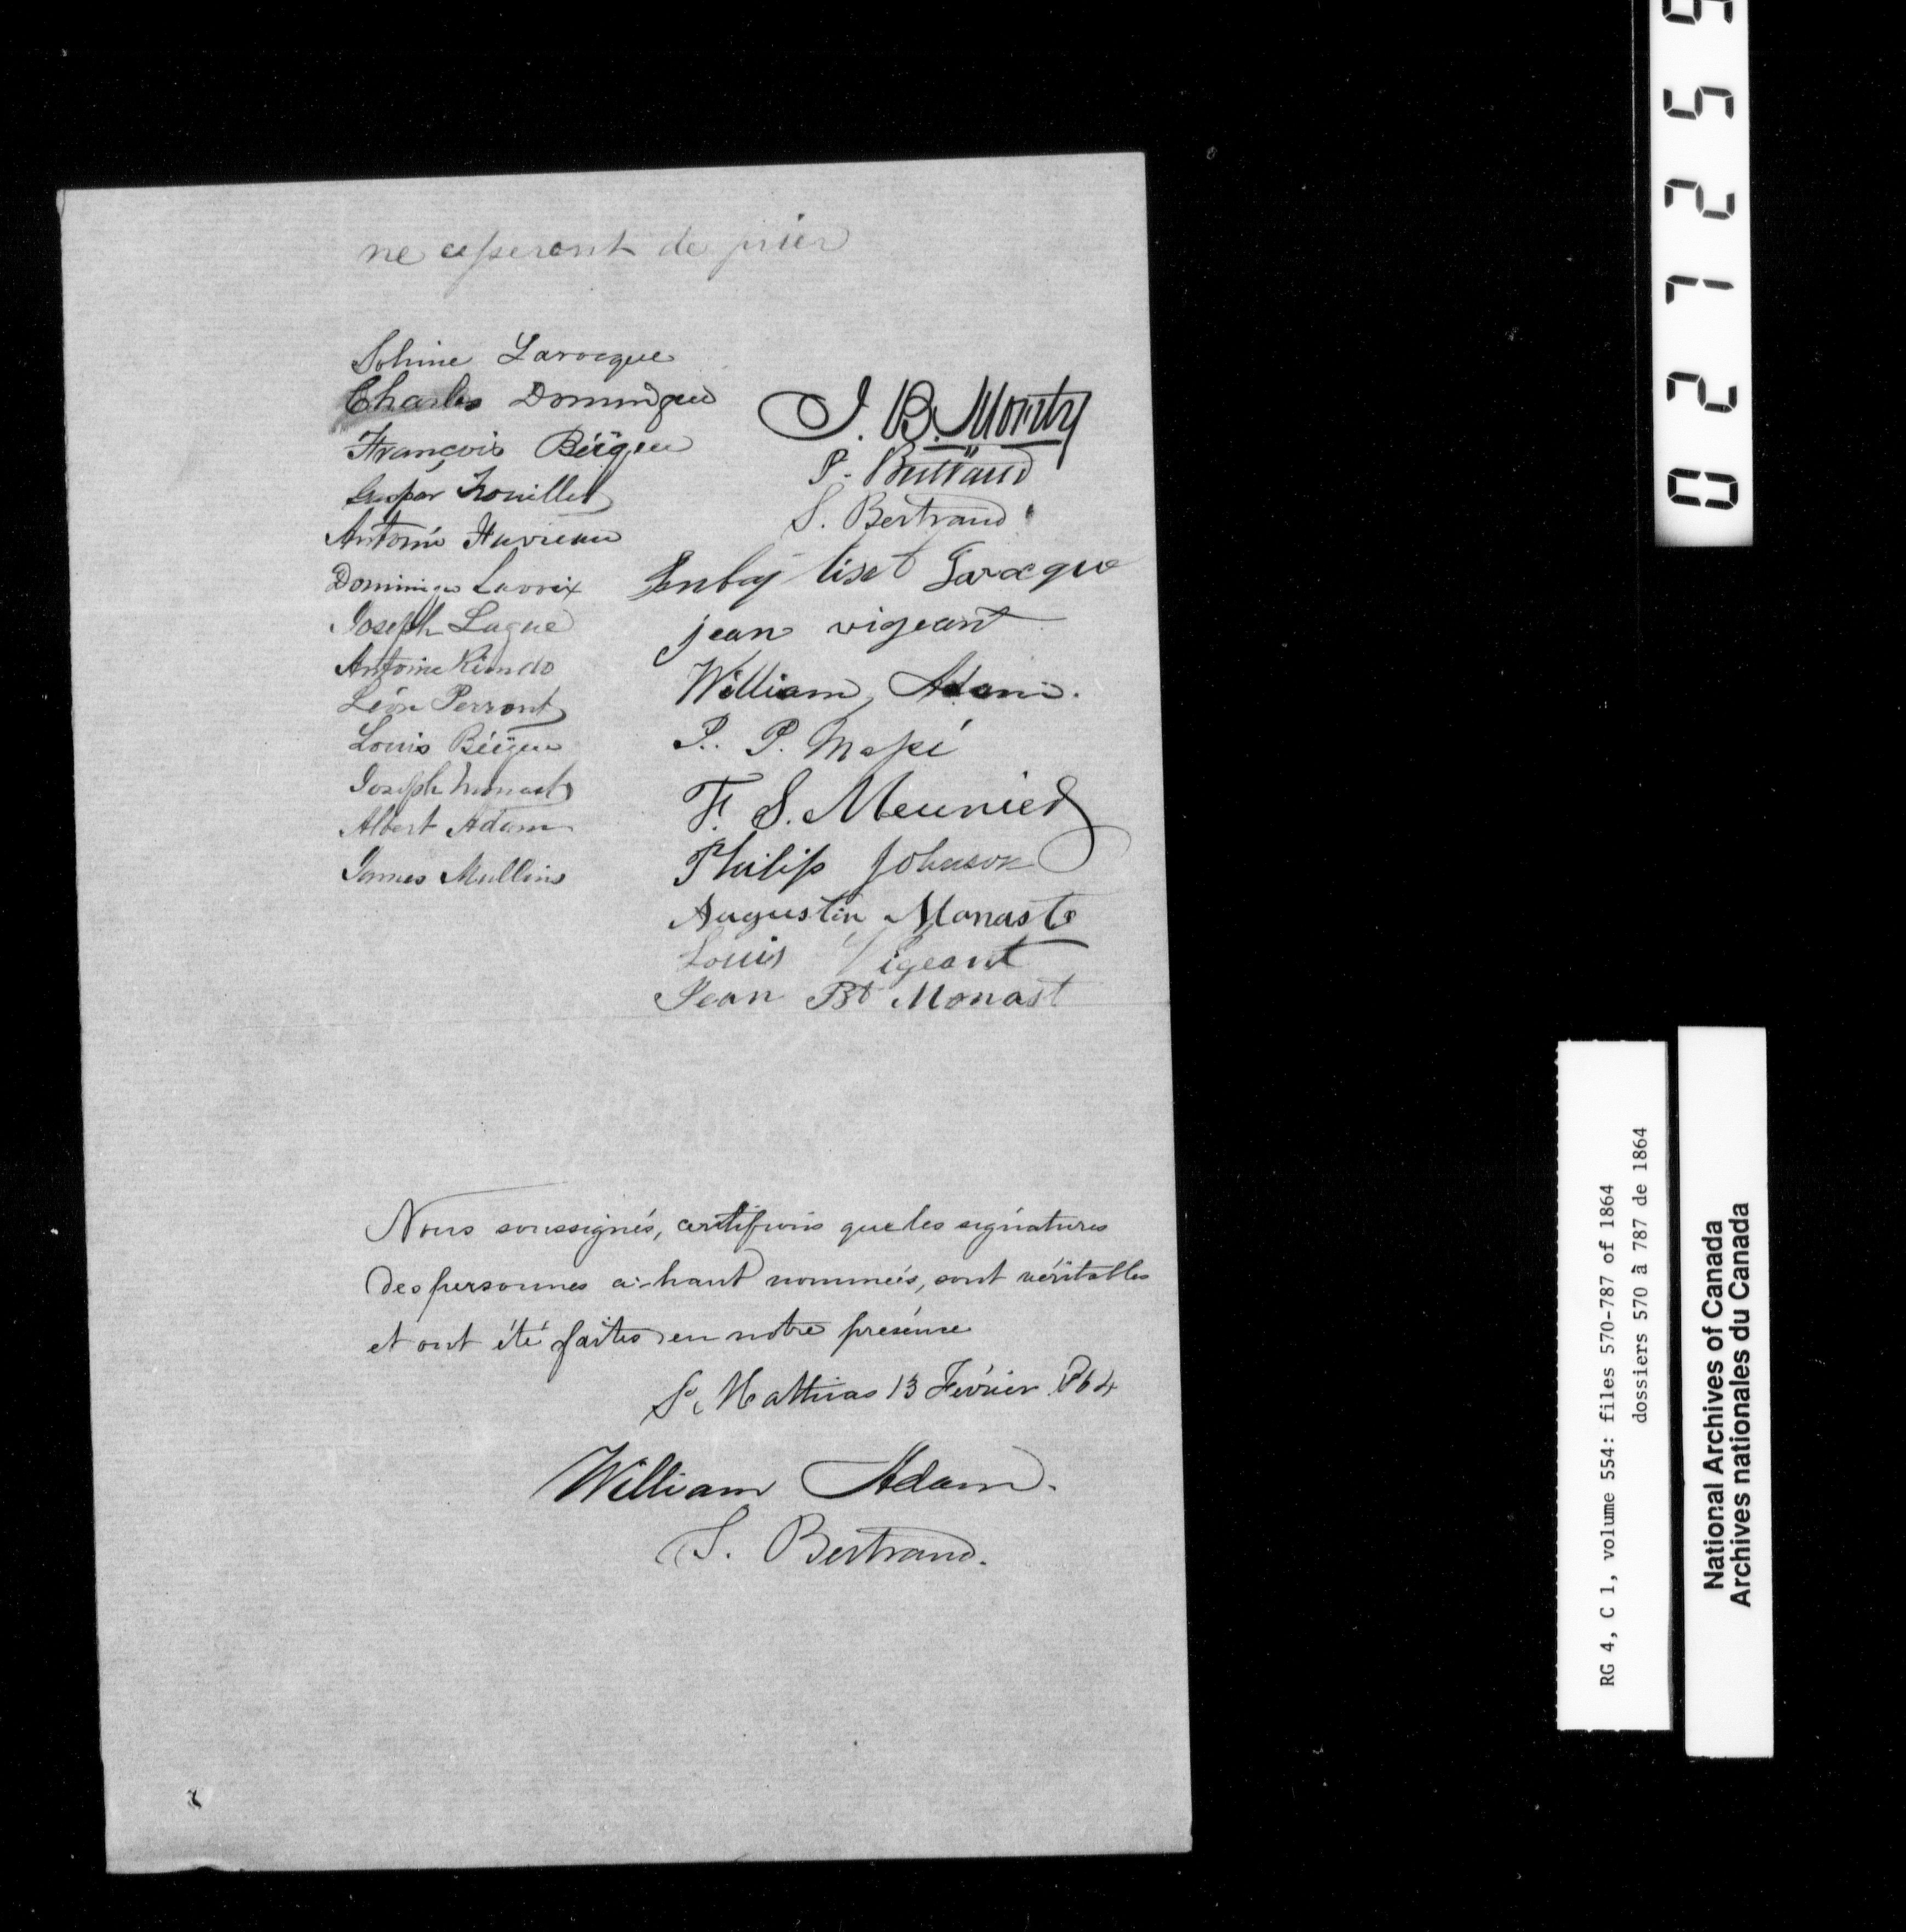 ne cesseront de prier
Solime Larocque
Charles Domingue
François Béïque
Gaspar Frouillet
Antoine
Dominique Lacroix
Joseph Lague
Antoine
Léon Perront
Louis Béïque
Joseph Monast
Albert Adam
James Mullins
J. B.
P. Bertrand
S. Bertrand
liset Larocque
jean vigeant
William Adam.
P. P.
F. S. Meunier
Philip Johnson
Augustin Monaste
Louis Vigeant
Jean Bt Monast
Nous soussignés, certifions que les signatures
des personnes ci-haut nommées, sont véritables
et ont été faites en notre présence
St Mathias 13 Février 1864
William Adam.
S. Bertrand.
027259
RG 4, C 1, volume 554: files 570-787 of 1864
dossiers 570 à 787 de 1864
National Archives of Canada
Archives nationales du Canada